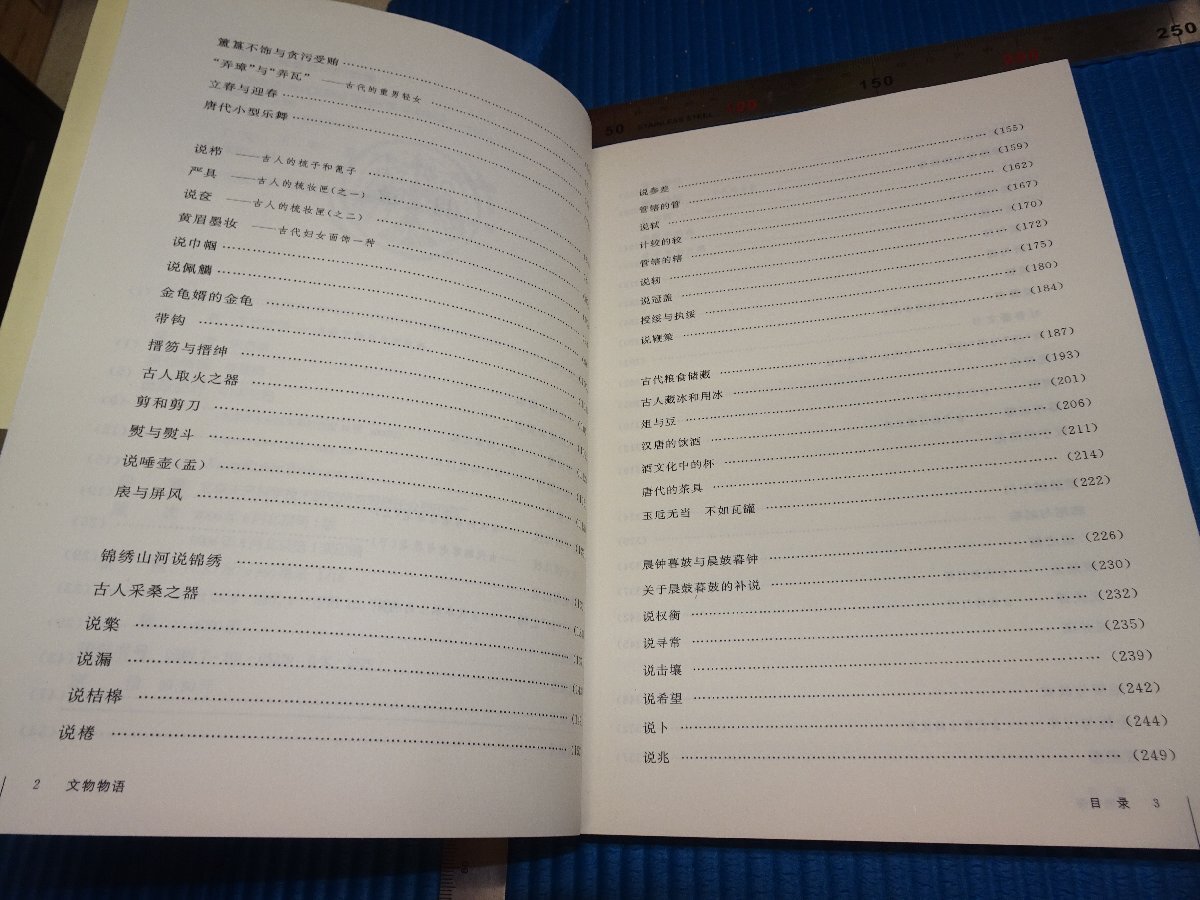 簠簋不饰与贪污受贿
“弄璋”与“弄瓦” ——古代的重男轻女
立春与迎春
唐代小型乐舞
说栉 ——古人的梳子和篦子
严具 ——古人的梳妆匣(之一)
说奁 ——古人的梳妆匣(之二)
黄眉墨妆 ——古代妇女面饰一种
说巾帼
说佩觿
金龟婿的金龟
带钩
搢笏与搢绅
古人取火之器
剪和剪刀
熨与熨斗
说唾壶(盂)
扆与屏风
锦绣山河说锦绣
古人采桑之器
说檠
说漏
说桔槔
说棬
2 文物物语
50 STAINLESS STEEL 100 150 200 250
说参差 (155)
管辖的管 (159)
说轼 (162)
计较的较 (167)
管辖的辖 (170)
说轫 (172)
说冠盖 (175)
授绥与执绥 (180)
说鞭策 (184)
古代粮食储藏 (187)
古人藏冰和用冰 (193)
俎与豆 (201)
汉唐的饮酒 (206)
酒文化中的杯 (211)
唐代的茶具 (214)
玉卮无当 不如瓦罐 (222)
晨钟暮鼓与晨鼓暮钟 (226)
关于晨鼓暮鼓的补说 (230)
说权衡 (232)
说寻常 (235)
说击壤 (239)
说希望 (242)
说卜 (244)
说兆 (249)
目录 3